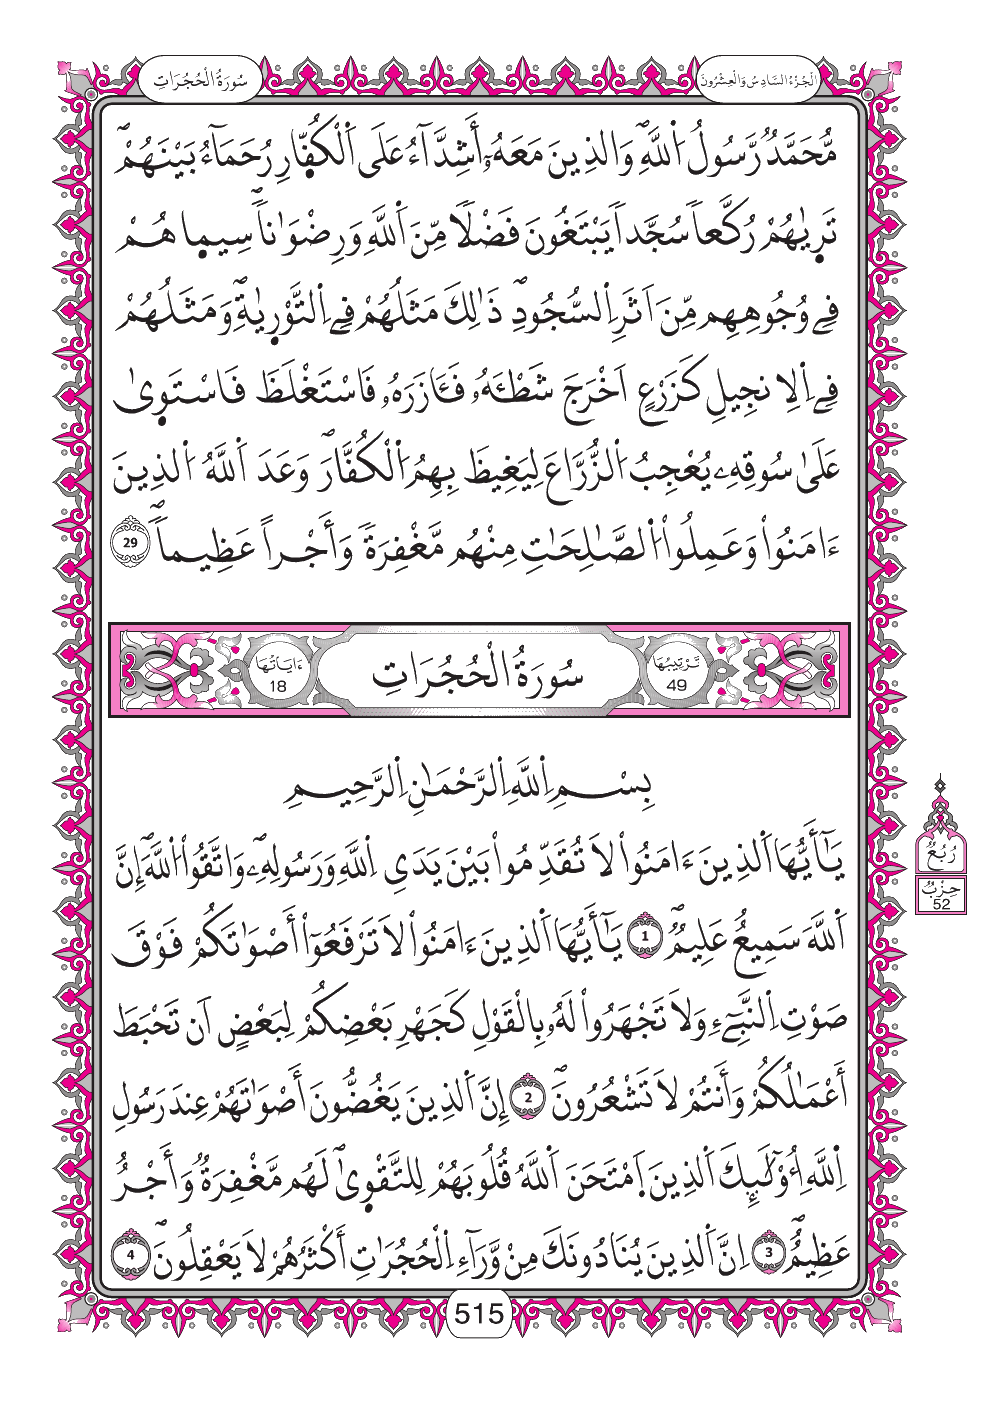 الْجُزْءُ السَّادِسُ وَالْعِشْرُونَ
سُورَةُ الْحُجُرَاتِ
مُّحَمَّدٌ رَّسُولُ اُللَّهِۖ وَالذِينَ مَعَهُۥٓ أَشِدَّآءُ عَلَى اَلْكُفّ۪ارِ رُحَمَآءُ بَيْنَهُمْۖ
تَر۪يٰهُمْ رُكَّعاٗ سُجَّداٗ يَبْتَغُونَ فَضْلاٗ مِّنَ اَللَّهِ وَرِضْوَٰناٗۖ سِيم۪اهُمْ
فِے وُجُوهِهِم مِّنَ اَثَرِ اِلسُّجُودِۖ ذَٰلِكَ مَثَلُهُمْ فِے اِلتَّوْر۪يٰةِۖ وَمَثَلُهُمْ
فِے اِلِانجِيلِ كَزَرْعٍ اَخْرَجَ شَطْـَٔهُۥ فَـَٔازَرَهُۥ فَاسْتَغْلَظَ فَاسْتَو۪ىٰ
عَلَىٰ سُوقِهِۦ يُعْجِبُ اُلزُّرَّاعَ لِيَغِيظَ بِهِمُ اُلْكُفَّارَۖ وَعَدَ اَللَّهُ اُلذِينَ
ءَامَنُواْ وَعَمِلُواْ اُلصَّٰلِحَٰتِ مِنْهُم مَّغْفِرَةٗ وَأَجْراً عَظِيماٗۖ 29
تَرْتِيبُهَا 49
سُورَةُ الْحُجُرَاتِ
ءَايَاتُهَا 18
بِسْمِ اِللَّهِ اِلرَّحْمَٰنِ اِلرَّحِيمِ
يَٰٓأَيُّهَا اَلذِينَ ءَامَنُواْ لَا تُقَدِّمُواْ بَيْنَ يَدَيِ اِللَّهِ وَرَسُولِهِۦۖ وَاتَّقُواْ اُللَّهَۖ إِنَّ
اَللَّهَ سَمِيعٌ عَلِيمٞۖ 1 يَٰٓأَيُّهَا اَلذِينَ ءَامَنُواْ لَا تَرْفَعُوٓاْ أَصْوَٰتَكُمْ فَوْقَ
صَوْتِ اِلنَّبِےٓءِ وَلَا تَجْهَرُواْ لَهُۥ بِالْقَوْلِ كَجَهْرِ بَعْضِكُمْ لِبَعْضٍ اَن تَحْبَطَ
أَعْمَٰلُكُمْ وَأَنتُمْ لَا تَشْعُرُونَۖ 2 إِنَّ اَلذِينَ يَغُضُّونَ أَصْوَٰتَهُمْ عِندَ رَسُولِ
اِللَّهِ أُوْلَٰٓئِكَ اَلذِينَ اَمْتَحَنَ اَللَّهُ قُلُوبَهُمْ لِلتَّقْو۪ىٰۖ لَهُم مَّغْفِرَةٞ وَأَجْرٌ
عَظِيمٌۖ 3 اِنَّ اَلذِينَ يُنَادُونَكَ مِنْ وَّرَآءِ اِلْحُجُرَٰتِ أَكْثَرُهُمْ لَا يَعْقِلُونَۖ 4
رُبُعٌ
حِزْبٌ
52
515